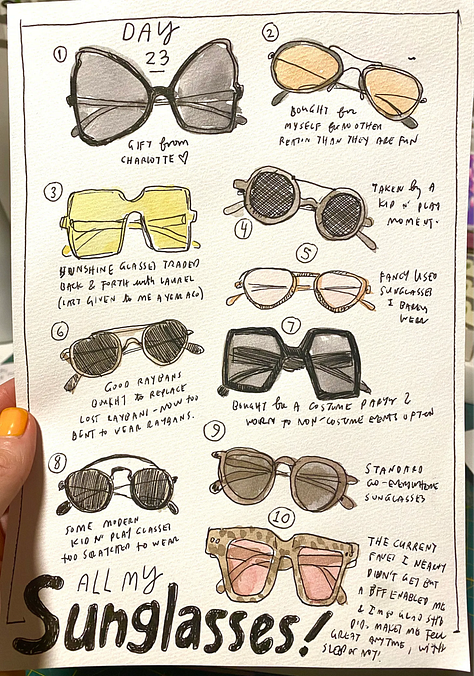 DAY
23
1
GIFT from
CHARLOTTE ♡
2
BOUGHT for
MYSELF for NO OTHER
REASON THAN THEY ARE FUN
3
SUNSHINE GLASSES TRADED
BACK & FORTH with LAUREL
(LAST GIVEN to ME A YEAR AGO)
4
TAKEN by A
KID n' PLAY
MOMENT.
5
FANCY USED
SUNGLASSES
I BARELY
WEAR
6
GOOD RAYBANS
BOUGHT to REPLACE
LOST RAYBANS - NOW TOO
BENT to WEAR RAYBANS.
7
BOUGHT for A COSTUME PARTY &
WORN to NON-COSTUME EVENTS OFTEN
8
SOME MODERN
KID N' PLAY GLASSES
TOO SCRATCHED to WEAR
9
STANDARD
GO-EVERYWHERE
SUNGLASSES
10
THE CURRENT
FAVE! I NEARLY
DIDN'T GET BUT
A BFF ENABLED ME
& I'm so GLAD SHE
DID. MAKES ME FEEL
GREAT ANYTIME, WITH
SLEEP or NOT.
ALL MY
Sunglasses!